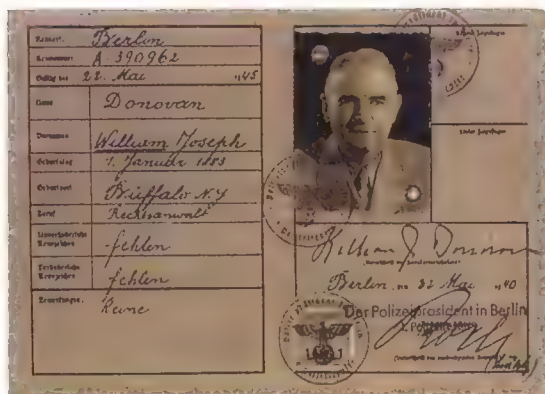 Kennort: Berlin
Kennummer: A 390962
Gültig bis 22. Mai 1945
Name Donovan
Vornamen William Joseph
Geburtstag 1. Januar 1883
Geburtsort Buffalo N.Y
Beruf Rechtsanwalt
Unveränderliche Kennzeichen fehlen
Veränderliche Kennzeichen fehlen
Bemerkungen: Keine
Rechter Zeigefinger
Linker Zeigefinger
William J. Donovan
Berlin, den 22. Mai 1940
Der Polizeipräsident in Berlin